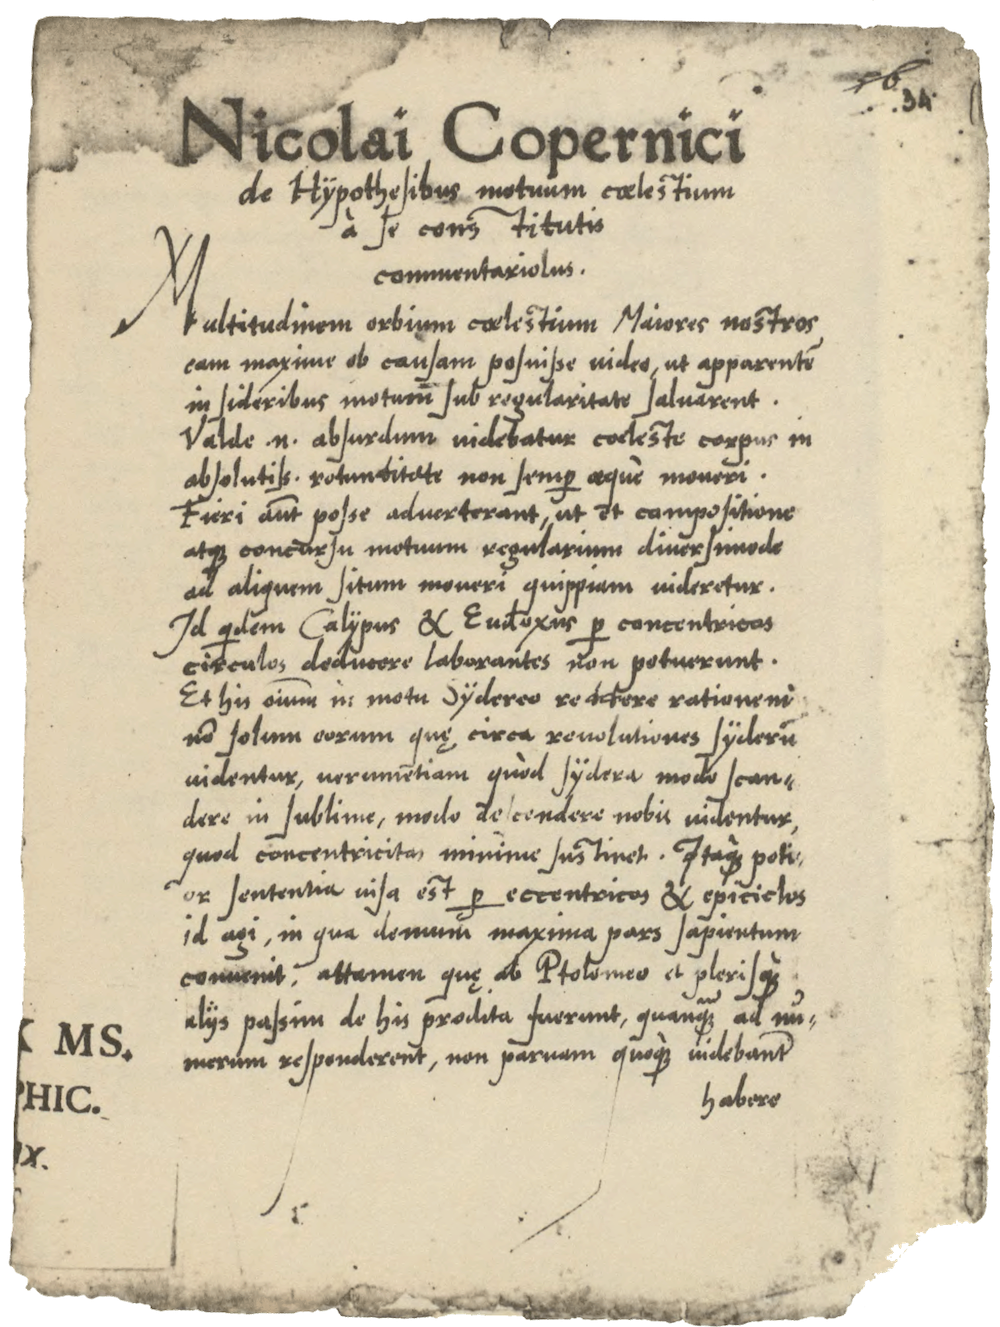 xb
.34.
Nicolai Copernici
de Hÿpothesibus motuum cœlestium
à se constitutis
commentariolus.
Multitudinem orbium cœlestium Maiores nostros
eam maxime ob causam posuisse video, ut apparentē
in sideribus motum̄ sub regularitate saluarent.
Valde .n. absurdum videbatur cœleste corpus in
absolutiss. rotunditate non semp æque moveri.
Fieri aūt posse adverterant, ut et compositione
atq concursu motuum regularium diversimode
ad aliquem situm moveri quippiam videretur.
Id qdem Calÿpus & Eudoxus p concentricos
circulos deducere laborantes non potuerunt.
Et his oium̄ in motu Sÿdereo reddere rationem
nō solum eorum quę circa revolutiones sÿderū
videntur, verumetiam quòd sÿdera modo scan-
dere in sublime, modo descendere nobis videntur,
quod concentricitas minime sustinet. Itaq poti-
or sententia visa est p eccentricos & epiciclos
id agi, in qua demum maxima pars sapientum
convenit, attamen quę ab Ptolomeo et plerisq
alÿs passim de his prodita fuerunt, quanq ad nu-
merum responderent, non parvam quoq videbant
habere
X MS.
PHIC.
IX.